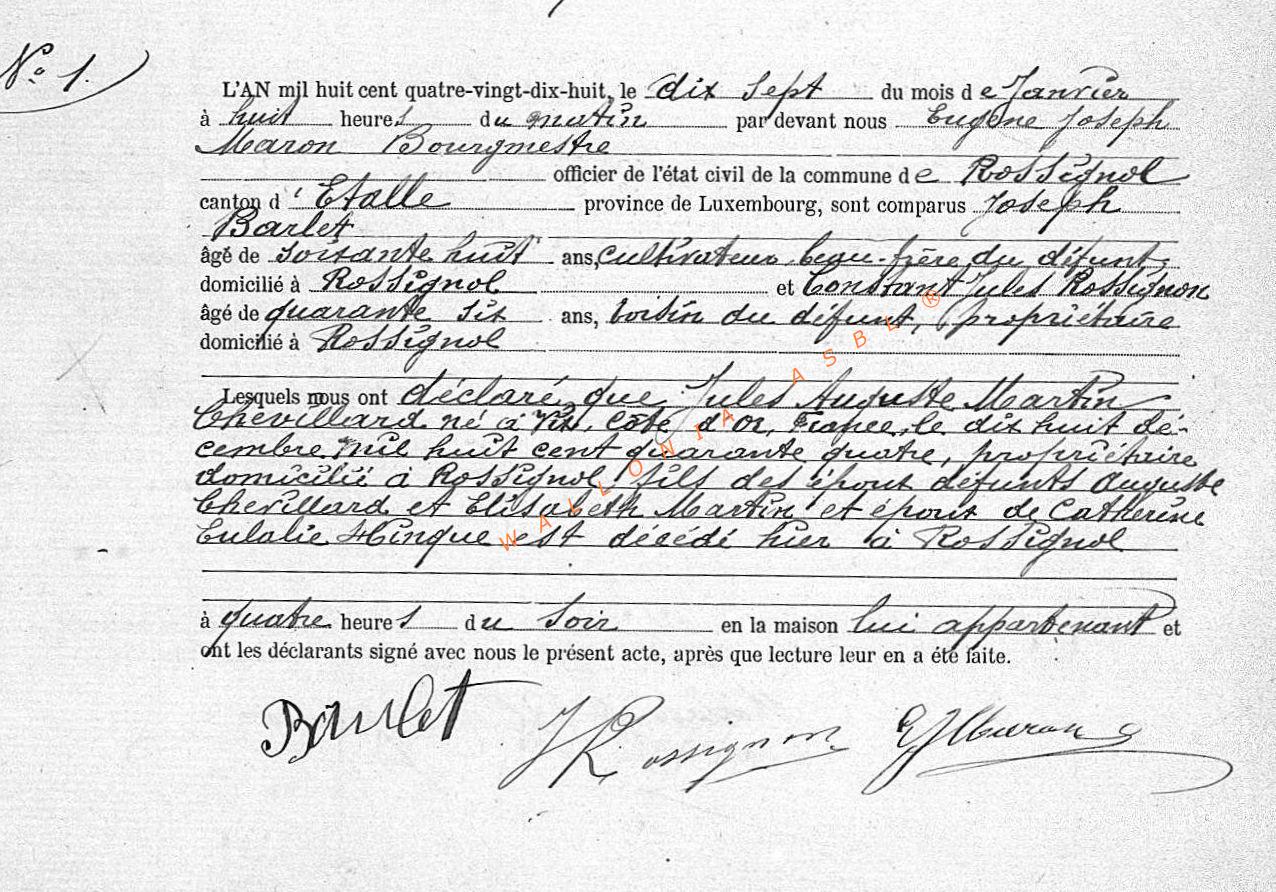 No 1.
L'AN mil huit cent quatre-vingt-dix-huit, le dix sept du mois de Janvier
à huit heures du matin par devant nous Eugène Joseph
Maron Bourgmestre
officier de l'état civil de la commune de Rossignol
canton d'Etalle province de Luxembourg, sont comparus Joseph
Barlet
âgé de soixante huit ans, cultivateur beau-frère du défunt
domicilié à Rossignol et Constant Jules Rossignon
âgé de quarante six ans, voisin du défunt, propriétaire
domicilié à Rossignol
Lesquels nous ont déclaré que Jules Auguste Martin
Chevillard né à Côte d'Or, France, le dix huit dé-
cembre mil huit cent quarante quatre, propriétaire
domicilié à Rossignol, fils des époux défunts Auguste
Chevillard et Elisabeth Martin et époux de Catherine
Eulalie Hinque est décédé hier à Rossignol
à quatre heures du soir en la maison lui appartenant et
ont les déclarants signé avec nous le présent acte, après que lecture leur en a été faite.
Barlet JRossignon EJMaron
WALLONIA ASBL ®